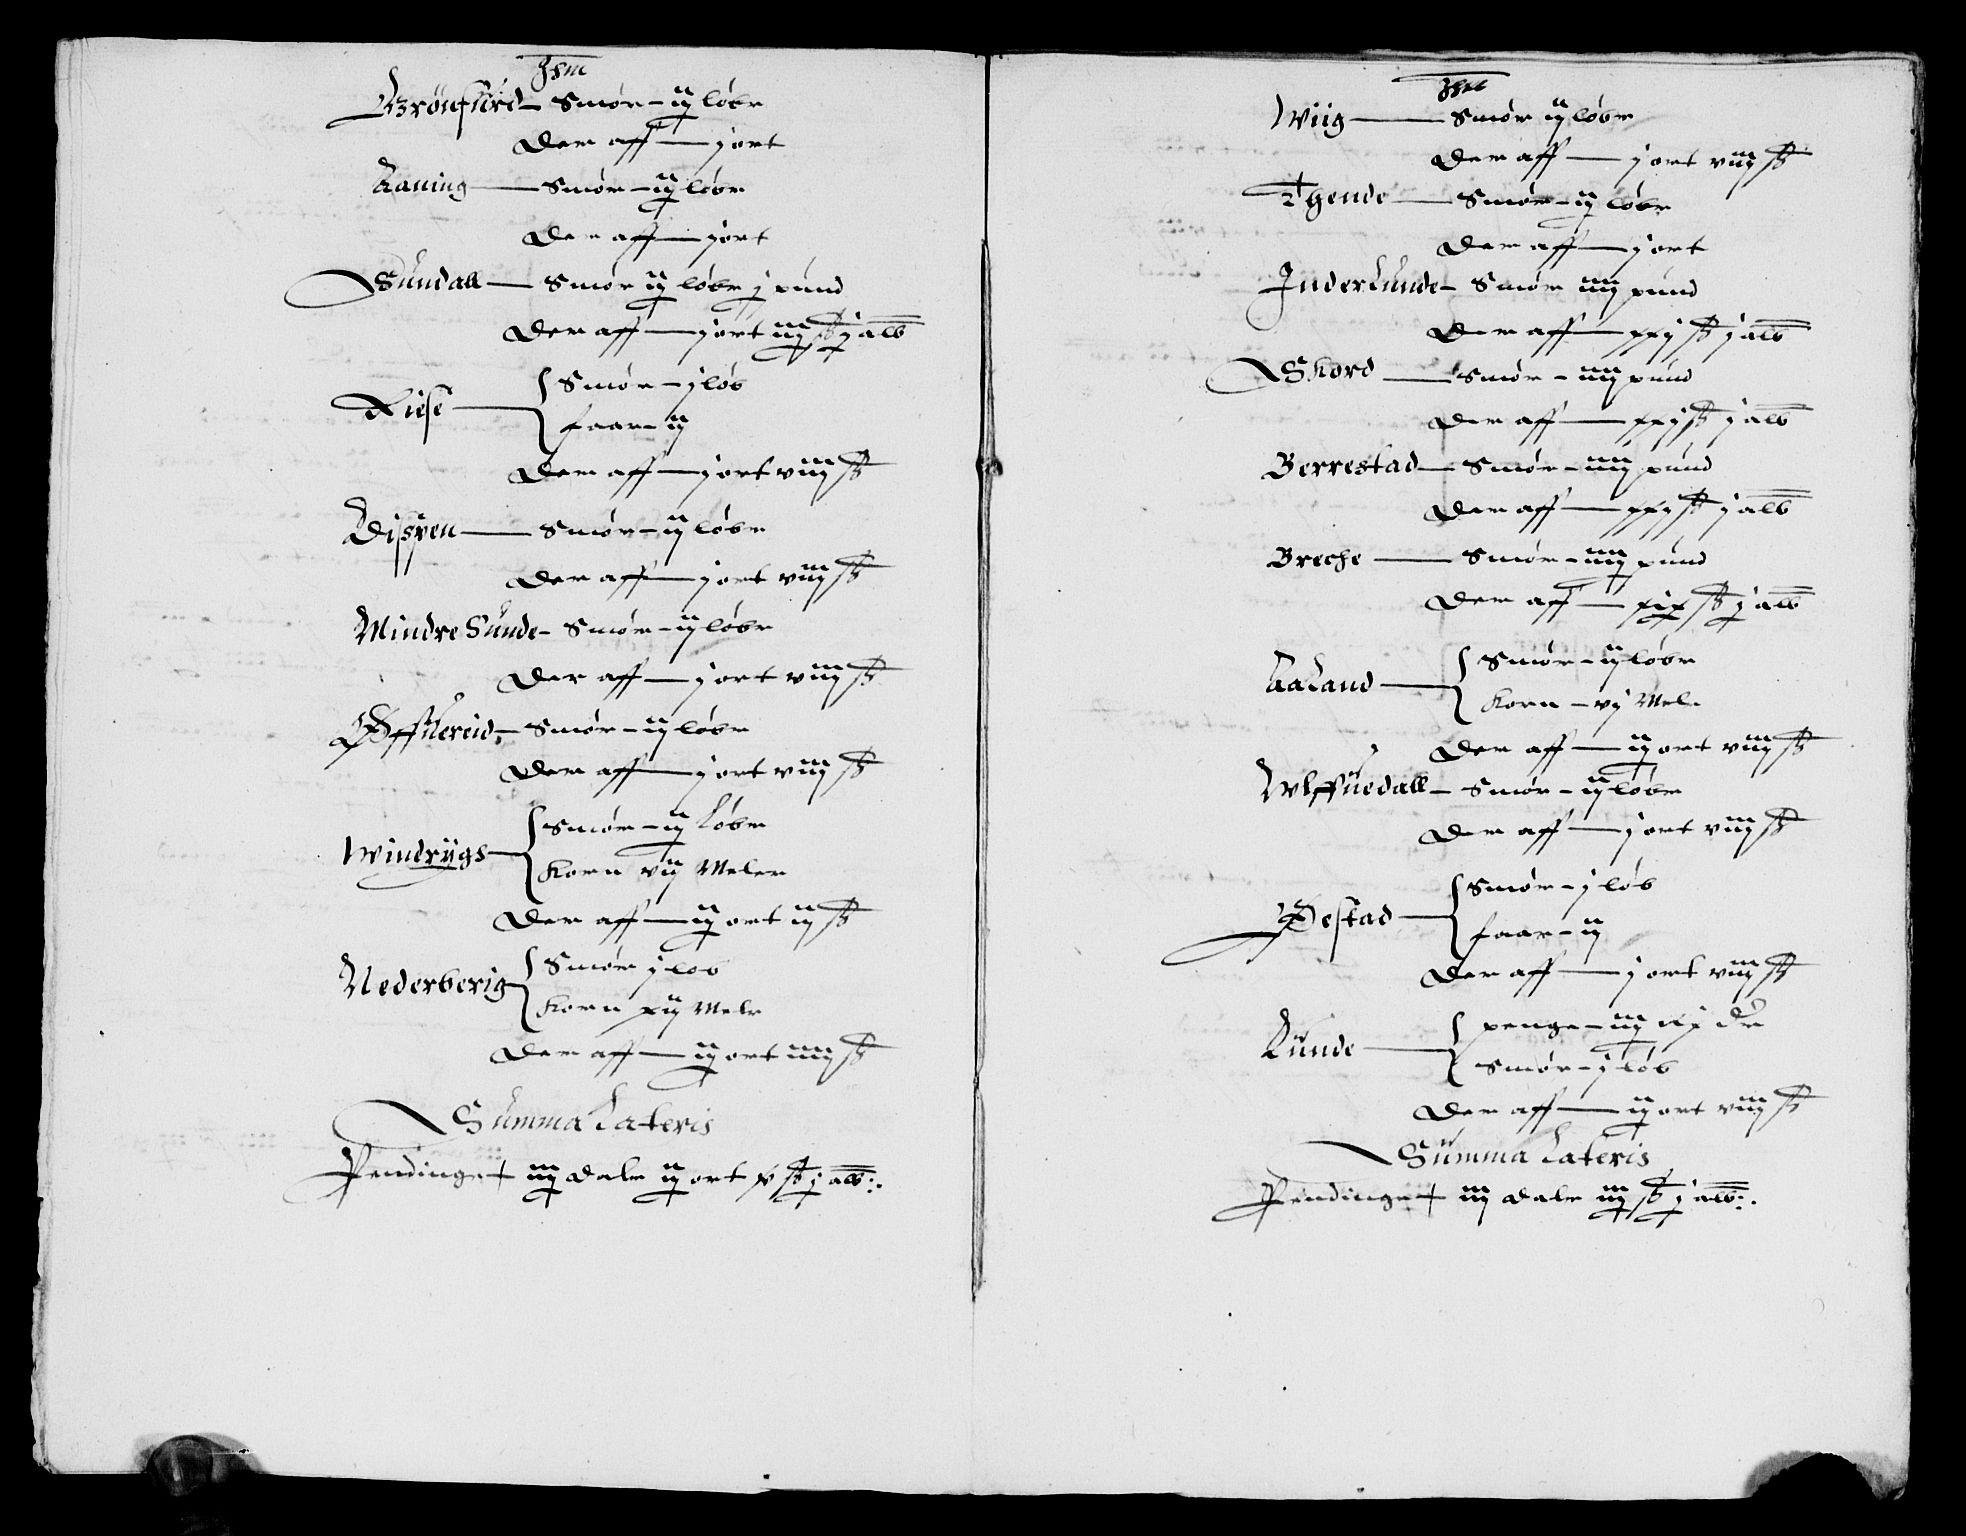 Ihm
Grönsfiird – Smör – ij löbe
Der aff — j ort
Aaning — Smör – ij löbe
Der aff — j ort
Sundall — Smör ij löbe j pund
Der aff — j ort iiij ß j alb
Riese — Smör – j löb
faar – ij
Der aff — j ort viij ß
Disßen — Smör – ij löbe
Der aff — j ort viij ß
Mindre Sunde – Smör – ij löbe
Der aff — j ort viij ß
Øffuereid – Smör – ij löbe
Der aff — j ort viij ß
Windrijgs — Smör – ij Löbe
Korn vij Meler
Der aff — ij ort ij ß
Nederberig – Smör j löb
Korn xij Mele
Der aff — ij ort iiij ß
Summa Lateris
Pendinge + iiij dale ij ort x ß j alb:.
Ihm
Wiig — Smör ij löbe
Der aff — j ort viij ß
Thende — Smör – ij löbe
Der aff — j ort
Inderlunde – Smör iiij pund
Der aff — xxj ß j alb
Skord — Smör – iiij pund
Der aff — xxj ß j alb
Berrestad — Smör – iiij pund
Der aff — xxj ß j alb
Breche — Smör – iiij pund
Der aff — xix ß j alb
Aaland — Smör – ij löbe
Korn – vj Mele
Der aff — ij ort viij ß
Wlffuedall – Smör – ij löbe
Der aff — j ort viij ß
Øestad — Smör – j löb
faar – ij
Der aff — j ort viij ß
Lunde — penge – iij
Smör – j löb
Der aff — ij ort viij ß
Summa Lateris
Pendinge + iiij dale iiij ß j alb:.